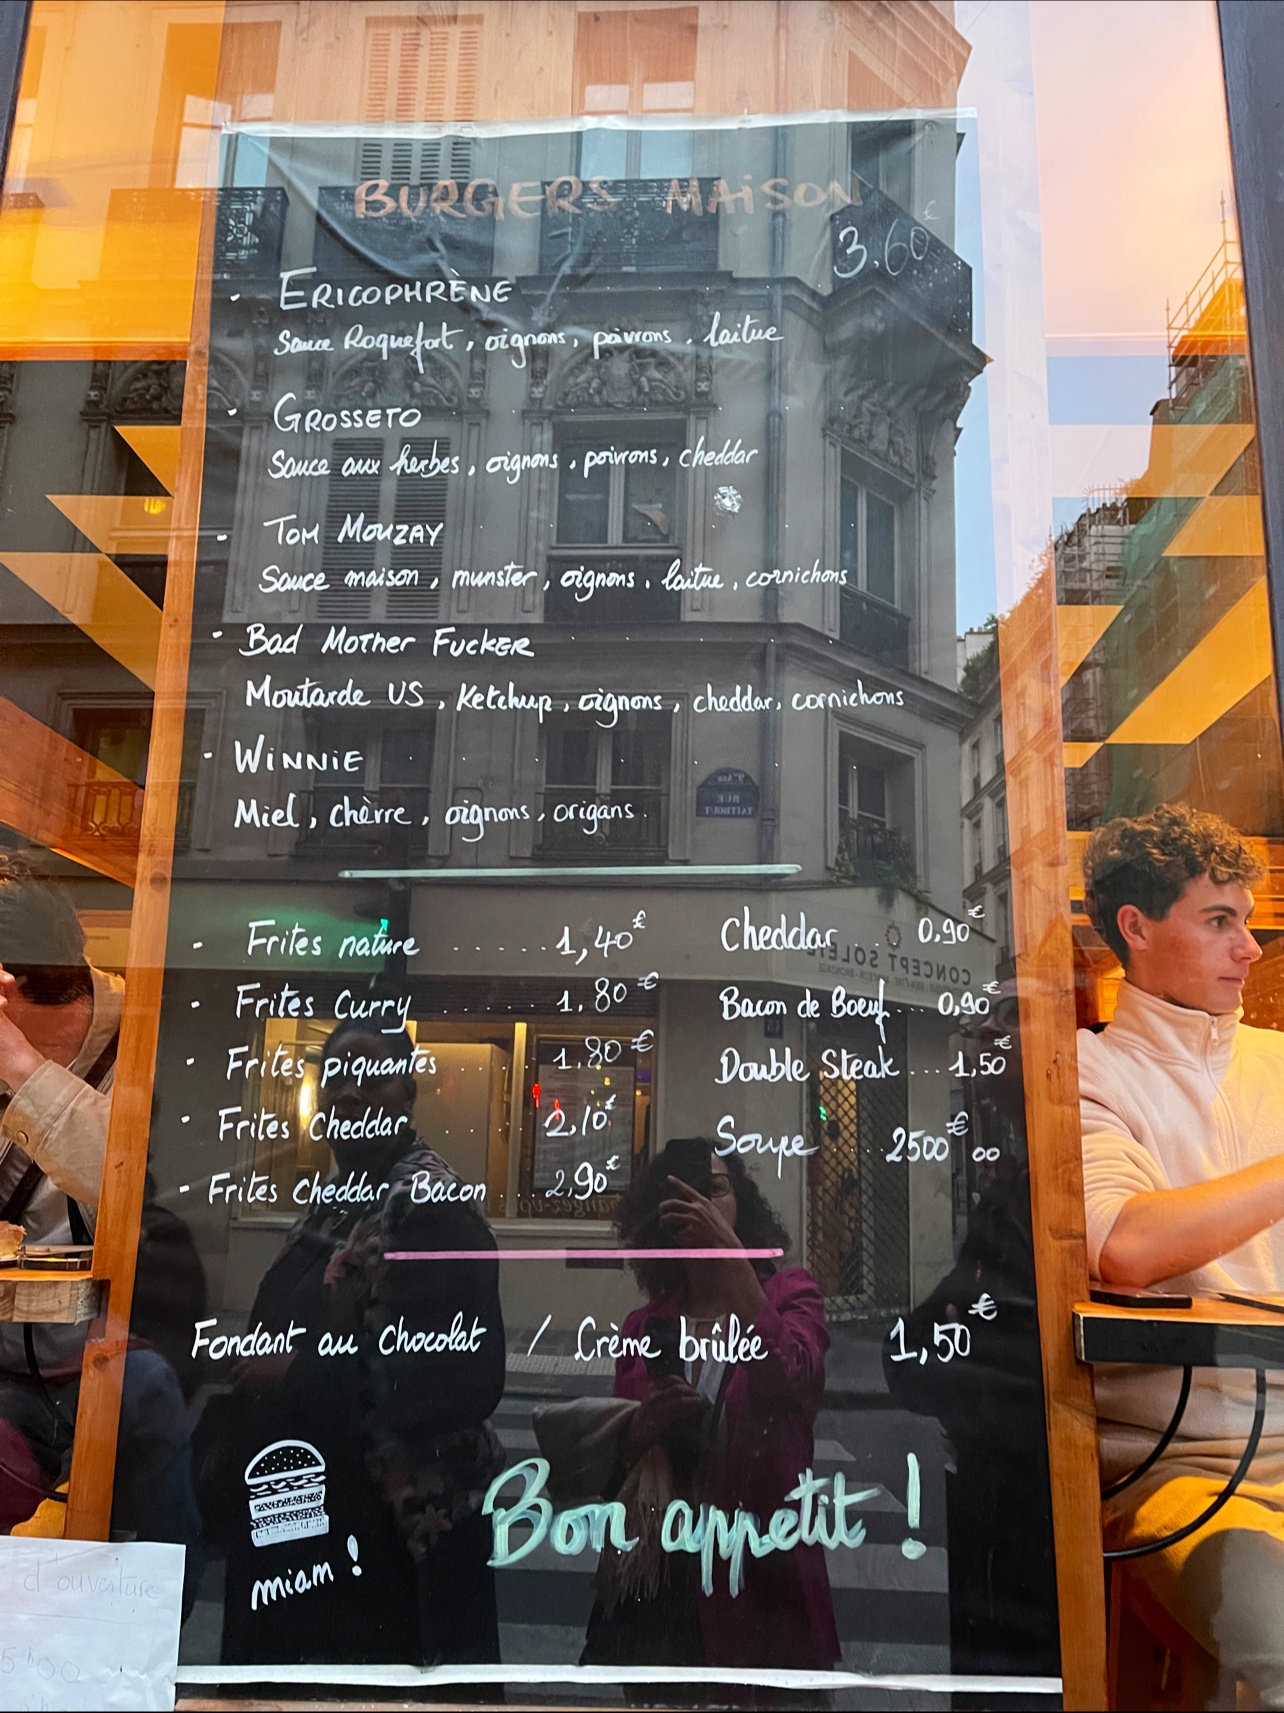 BURGERS MAISON
3,60€
- ERICOPHRÈNE
Sauce Roquefort, oignons, poivrons, laitue
- GROSSETO
Sauce aux herbes, oignons, poivrons, cheddar
- TOM MOUZAY
Sauce maison, munster, oignons, laitue, cornichons
- Bad Mother Fucker
Moutarde US, Ketchup, oignons, cheddar, cornichons
- WiNNiE
Miel, chèvre, oignons, origans.
- Frites nature ...... 1,40€
- Frites Curry ...... 1,80€
- Frites piquantes ..... 1,80€
- Frites Cheddar ..... 2,10€
- Frites cheddar Bacon ... 2,90€
Cheddar ... 0,90€
Bacon de Boeuf ... 0,90€
Double Steak ... 1,50€
Soupe .... 2500€00
Fondant au chocolat / Crème brûlée 1,50€
miam !
Bon appétit !
9e Arr
RUE
TAITBOUT
CONCEPT SOLEIL
d'ouverture
5h00